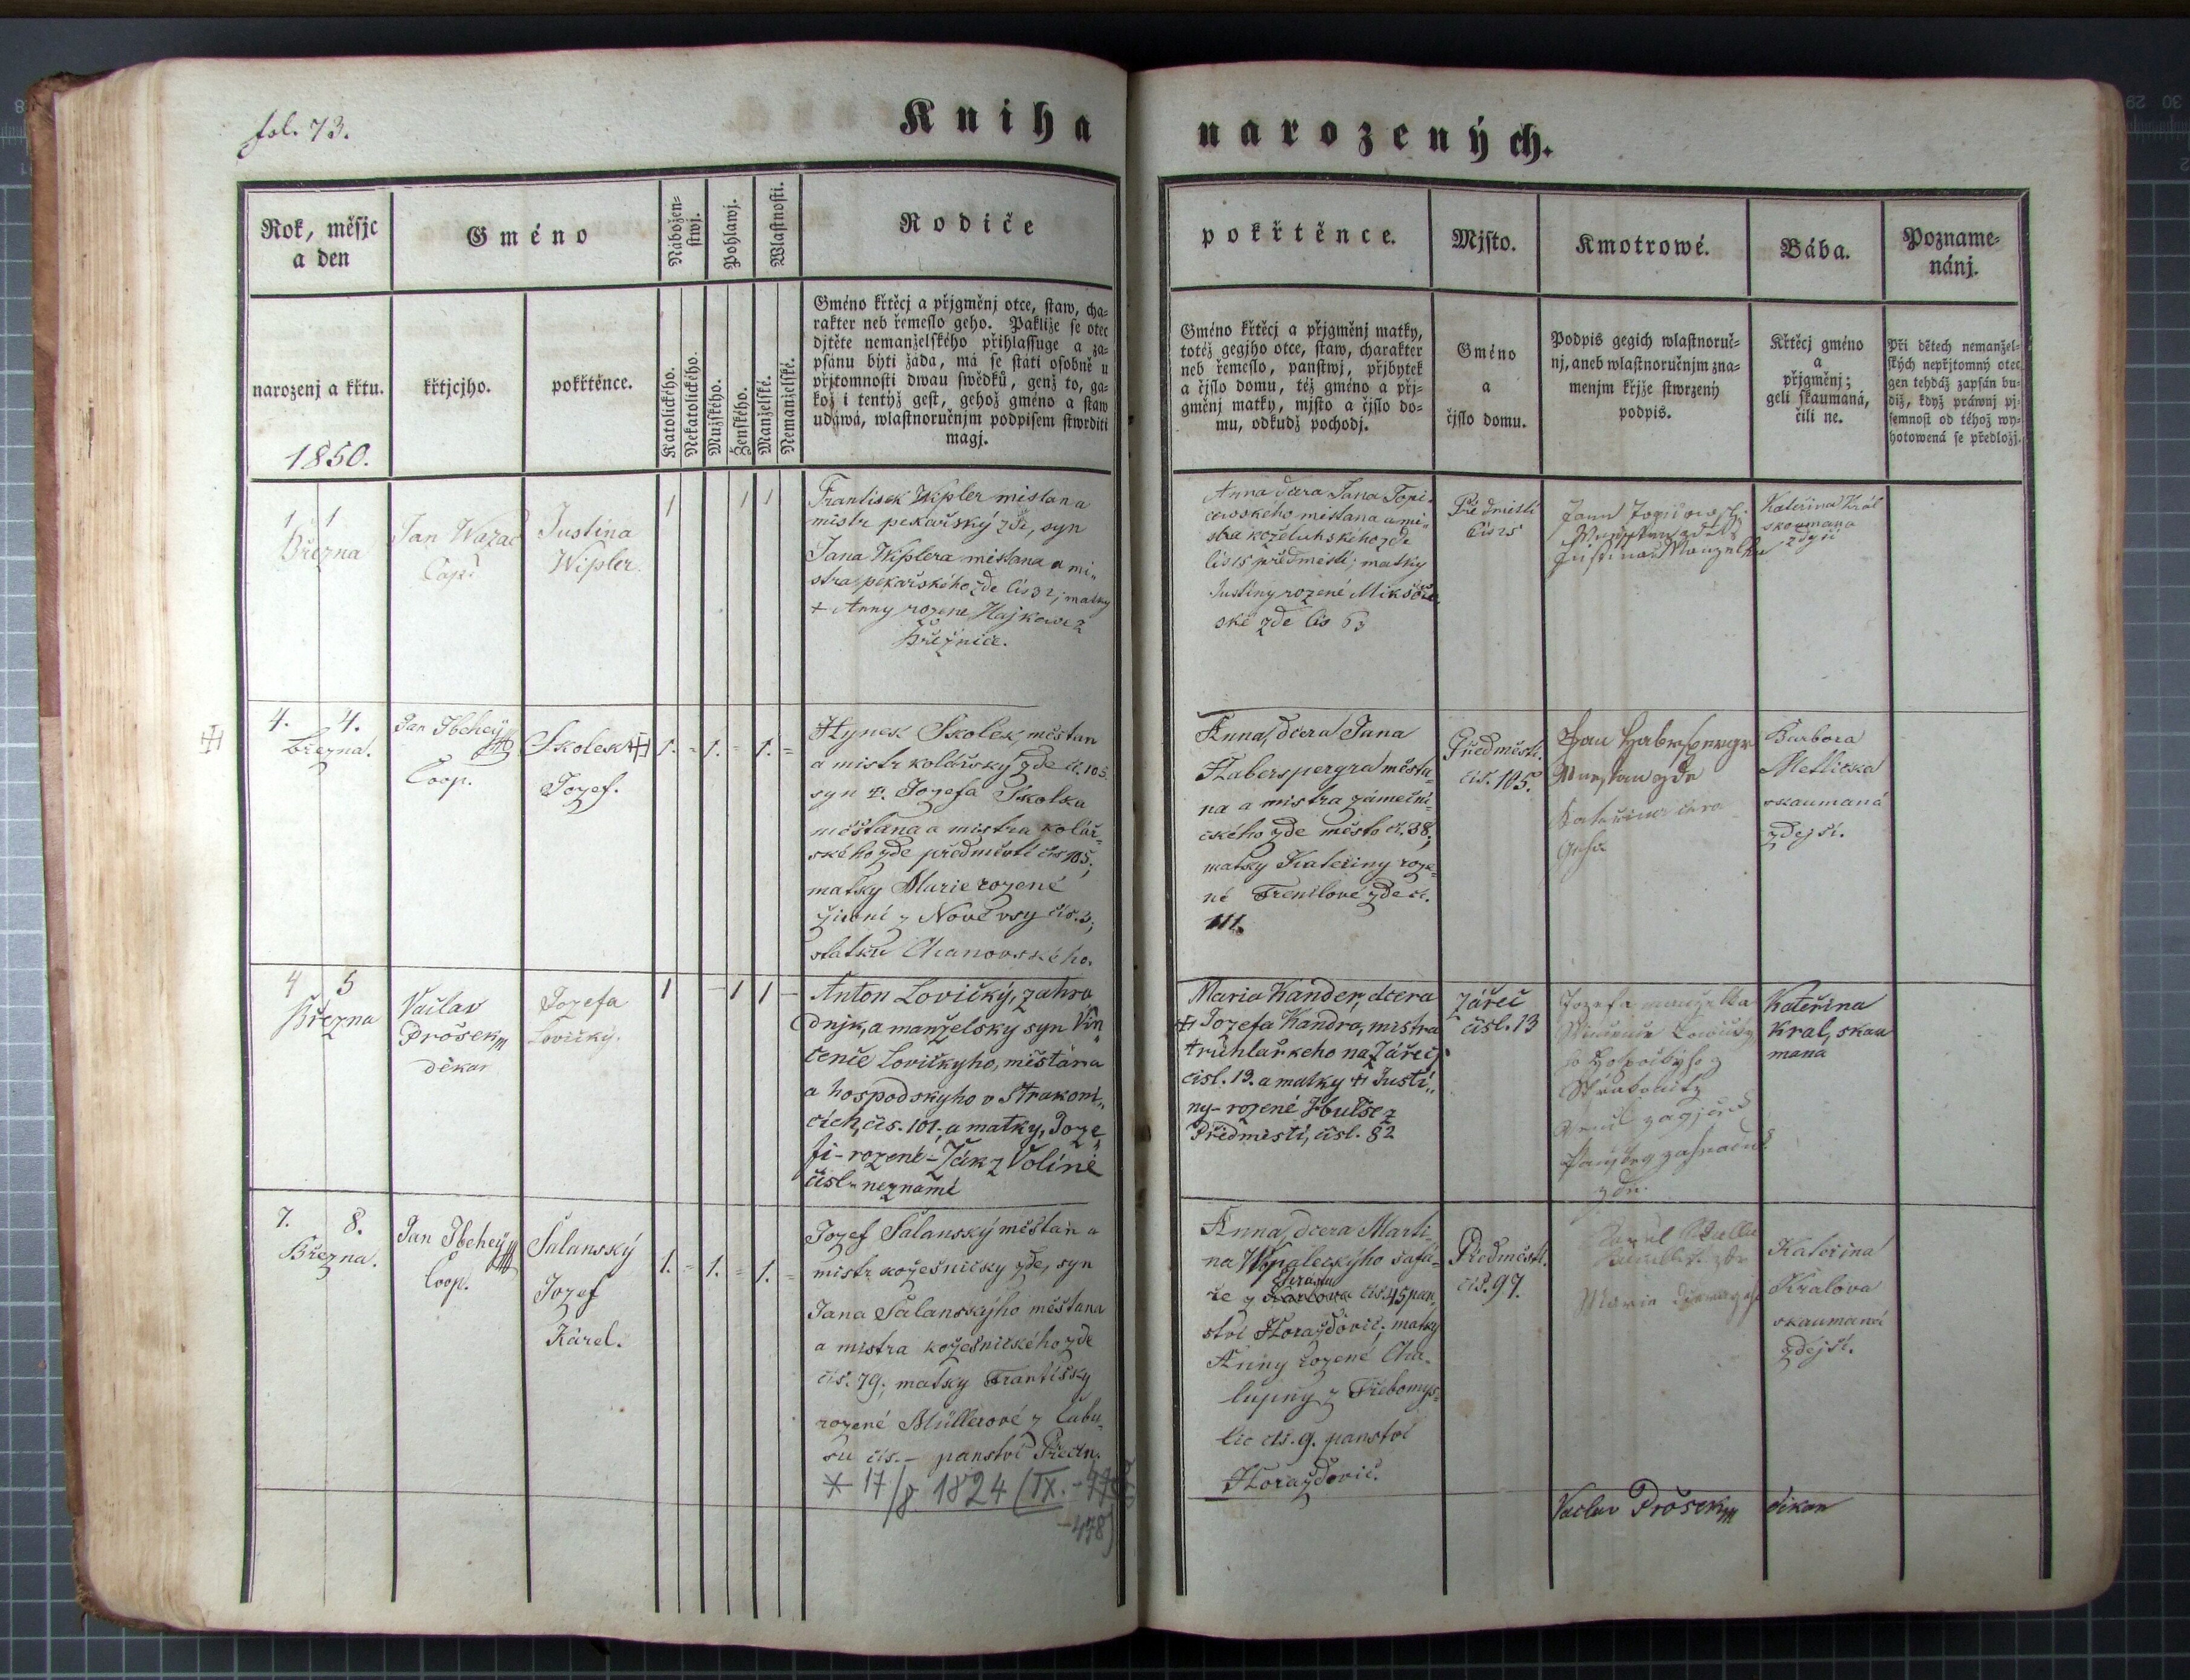 fol. 73.
Kniha
narozených.
Rok, měsjc
a den
narozenj a křtu.
1850.
Gméno
křtjcjho.
pokřtěnce.
Nábožen-
stwj.
Katolického.
Nekatolického.
Pohlawj.
Mužského.
Ženského.
Wlastnosti.
Manželské.
Nemanželské.
Rodiče
Gméno křtěcj a přjgměnj otce, staw, cha-
rakter neb řemeslo geho. Pakliže se otec
djtěte nemanželského přihlassuge a za-
psánu býti žádá, má se státi osobně u
přjtomnosti dwau swědků, genž to, ga-
kož i tentýž gest, gehož gméno a staw
udáwá, wlastnoručnjm podpisem stwrditi
magj.
pokřtěnce.
Gméno křtěcj a přjgměnj matky,
totéž gegjho otce, staw, charakter
neb řemeslo, panstwj, přjbytek
a čjslo domu, též gméno a přj-
gměnj matky, mjsto a čjslo do-
mu, odkudž pochodj.
Mjsto.
Gméno
a
čjslo domu.
Kmotrowé.
Podpis gegich wlastnoruč-
nj, aneb wlastnoručnjm zna-
menjm křjže stwrzený
podpis.
Bába.
Křtěcj gméno
a
přjgměnj;
geli skaumaná,
čili ne.
Pozname-
nánj.
Při dětech nemanžel-
ských nepřjtomný otec
gen tehdáž zapsán bu-
diž, když práwnj pj-
semnost od téhož wy-
hotowená se předložj.
1 1
Března
Jan Wazac
Cap.
Justina
Wipler.
1 1 1
Frantisek Wipler mistan a
mistr pekařský zde, syn
Jana Wiplera mistana a mi-
stra pekařského zde čís 32; matky
+ Anny rozené Hajkowe z
Březnice.
Anna dcera Jana Topi-
cowského mistana a mi-
stra koželuhského zde
čís 15 předmistí; matky
Justiny rozené
ské zde čís 63
Předmistí
čís 15
Kateřina Král
skoumana
zdejší
4. 4.
Března.
Jan Ibehey
Coop.
Skolek
Jozef.
1. - 1. - 1. -
Hynek Skolek, měštan
a mistr kolářský zde č. 105.
syn +. Jozefa Skolka
měštana a mistra kolář-
ského zde předměstí čís 105.;
matky Marie rozené
Zimní z Nové vsy čís. 3,
statku Chanovského.
Anna, dcera Jana
Haberspergra měšta-
na a mistra zámeční-
ckého zde město č. 38;
matky Kateřiny roze-
né Trenilové zde č.
111.
Předměstí.
čís. 105.
Jan Habersperger
Miestan zde
Kateřina cera
Geho
Barbora
Metlicka
skaumaná
zdejší.
4 5
Března
Vaclav
Prošek
děkan
Jozefa
Lovičký.
1 - 1 1 -
Anton Lovičký, zahra-
dnjk, a manželsky syn Vin-
čenče Lovičkyho, mištana
a hospodskyho v Strakoni-
cích, čis. 101. a matky, Joze-
fi - rozené - Žák z Volíně
čisl. neznamé
Maria Kander, dcera
+ Jozefa Kandra, mistra
truhlařkeho na Zářeč
cisl. 13. a matky + Justi-
ny - rozené Hbulše z
Předmisti, čisl. 82
Zářeč
čisl. 13
Jozefa manzelka
Kateřina
Kral, skau
mana
7. 8.
Března.
Jan Ibehey
Coop.
Šalanský
Jozef
Kárel.
1. - 1. - 1. -
Jozef Šalanský měštan a
mistr kožešnický zde, syn
Jana Šalanskýho měštana
a mistra kožešnického zde
čís. 79; matky Františky
rozené Müllerové z Labu-
su čís. - panství Předn.
* 17/8 1824 (IX. -
-478)
Anna, dcera Marti-
na Wopaleckýho šafá-
ře z čís. 45 pan-
stvi Horažďovic; matky
Anny rozené Cha-
lupny z Třebomys-
lic čís. 9. panství
Horažďovic.
Předměstí.
čís. 97.
Kateřina
Králova
skaumaná
zdejší.
Vaclav Prošek děkan